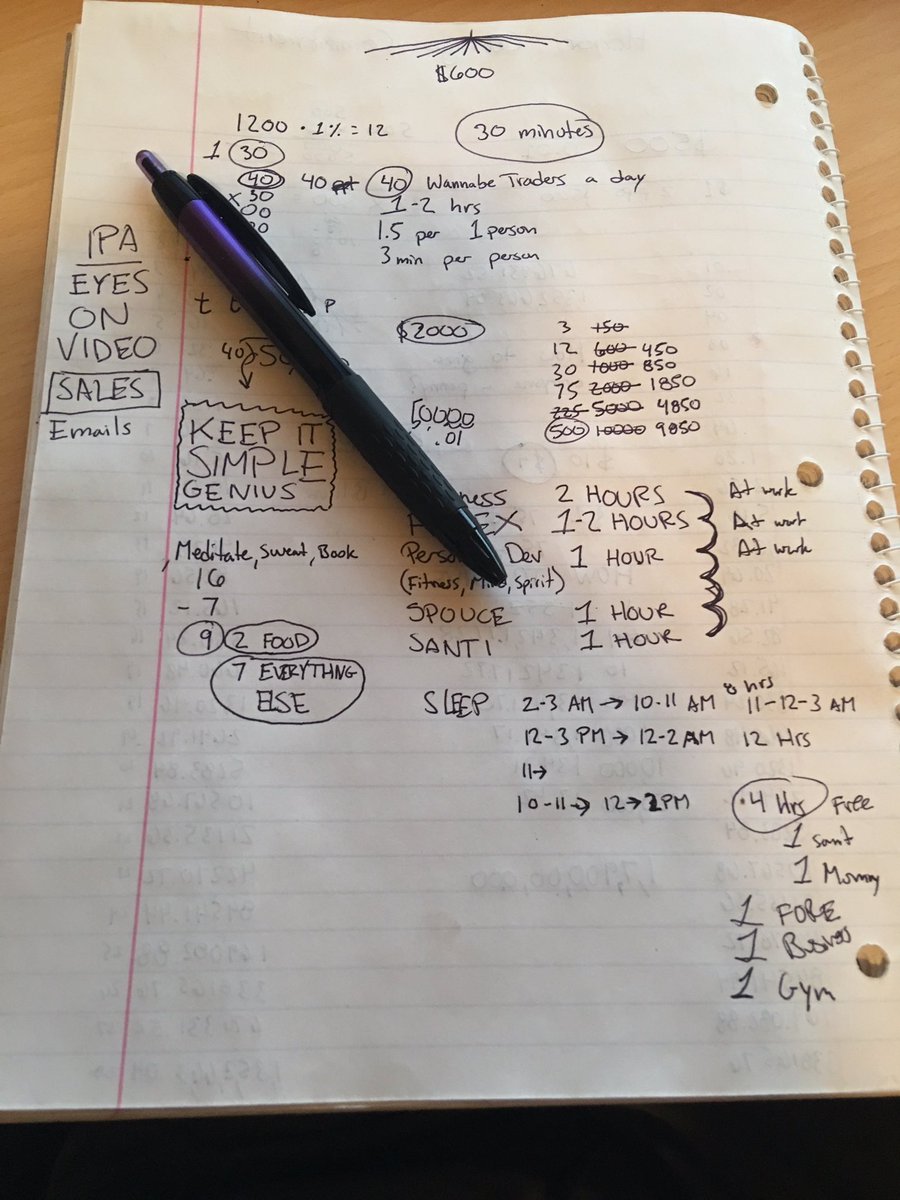 $600
1200 · 1% = 12
30 minutes
1 30
40 40 40 Wannabe Traders a day
x 30
00
1-2 hrs
1.5 per 1 person
3 min per person
IPA
EYES
ON
VIDEO
SALES
Emails
t t p
40
KEEP IT
SIMPLE
GENIUS
$2000
3 150
12 600 450
30 1000 850
75 2000 1850
225 5000 4850
500 10000 9850
.01
ness 2 HOURS At work
EX 1-2 HOURS At work
Dev 1 HOUR At work
(Fitness, Spirit)
SPOUCE 1 HOUR
SANTI 1 HOUR
, Meditate, Sweat, Book
16
- 7
9 2 FOOD
7 EVERYTHING
ELSE
SLEEP 2-3 AM → 10-11 AM 8 hrs 11-12-3 AM
12-3 PM → 12-2 AM 12 Hrs
11→
10-11→ 12→2PM
·4 Hrs Free
1 Sant
1 Mommy
1 FORE
1 Business
1 Gym